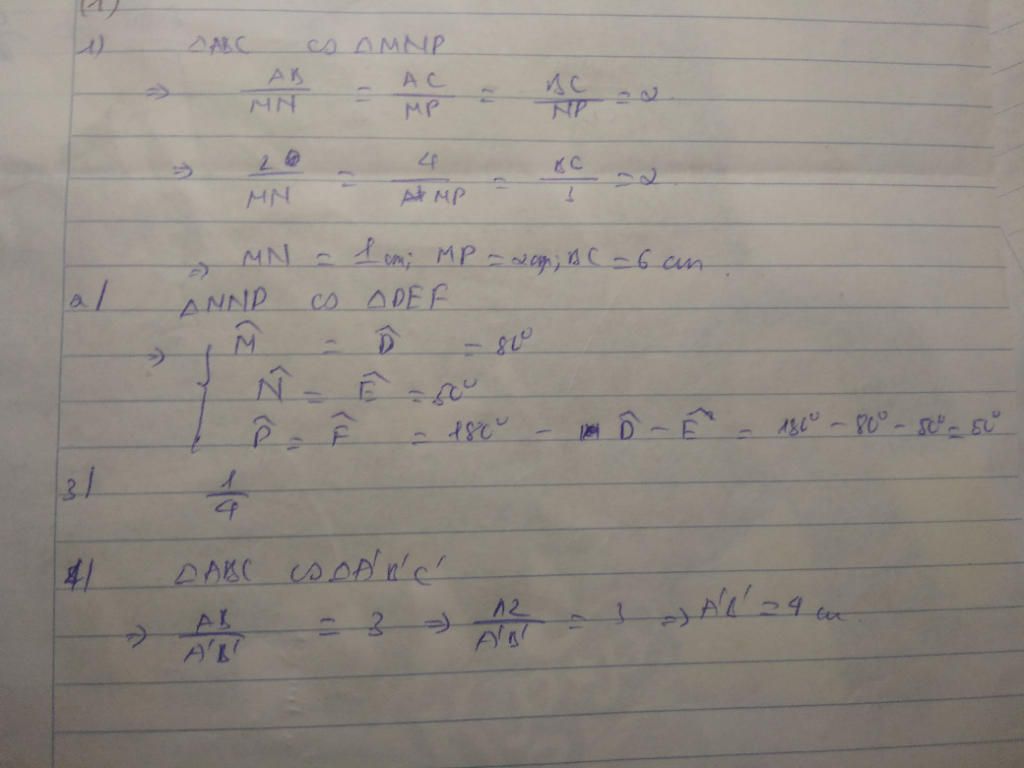 (1)
1) △ABC ∽ △MNP
⇒ AB/MN = AC/MP = BC/NP = 2
⇒ 2/MN = 4/MP = BC/3 = 2
⇒ MN = 1 cm; MP = 2cm; BC = 6 cm
2/ △MNP ∽ △DEF
⇒ { M̂ = D̂ = 80°
N̂ = Ê = 50°
P̂ = F̂ = 180° - D̂ - Ê = 180° - 80° - 50° = 50°
3/ 1/4
4/ △ABC ∽ △A'B'C'
⇒ AB/A'B' = 3 ⇒ 12/A'B' = 3 ⇒ A'B' = 4 cm